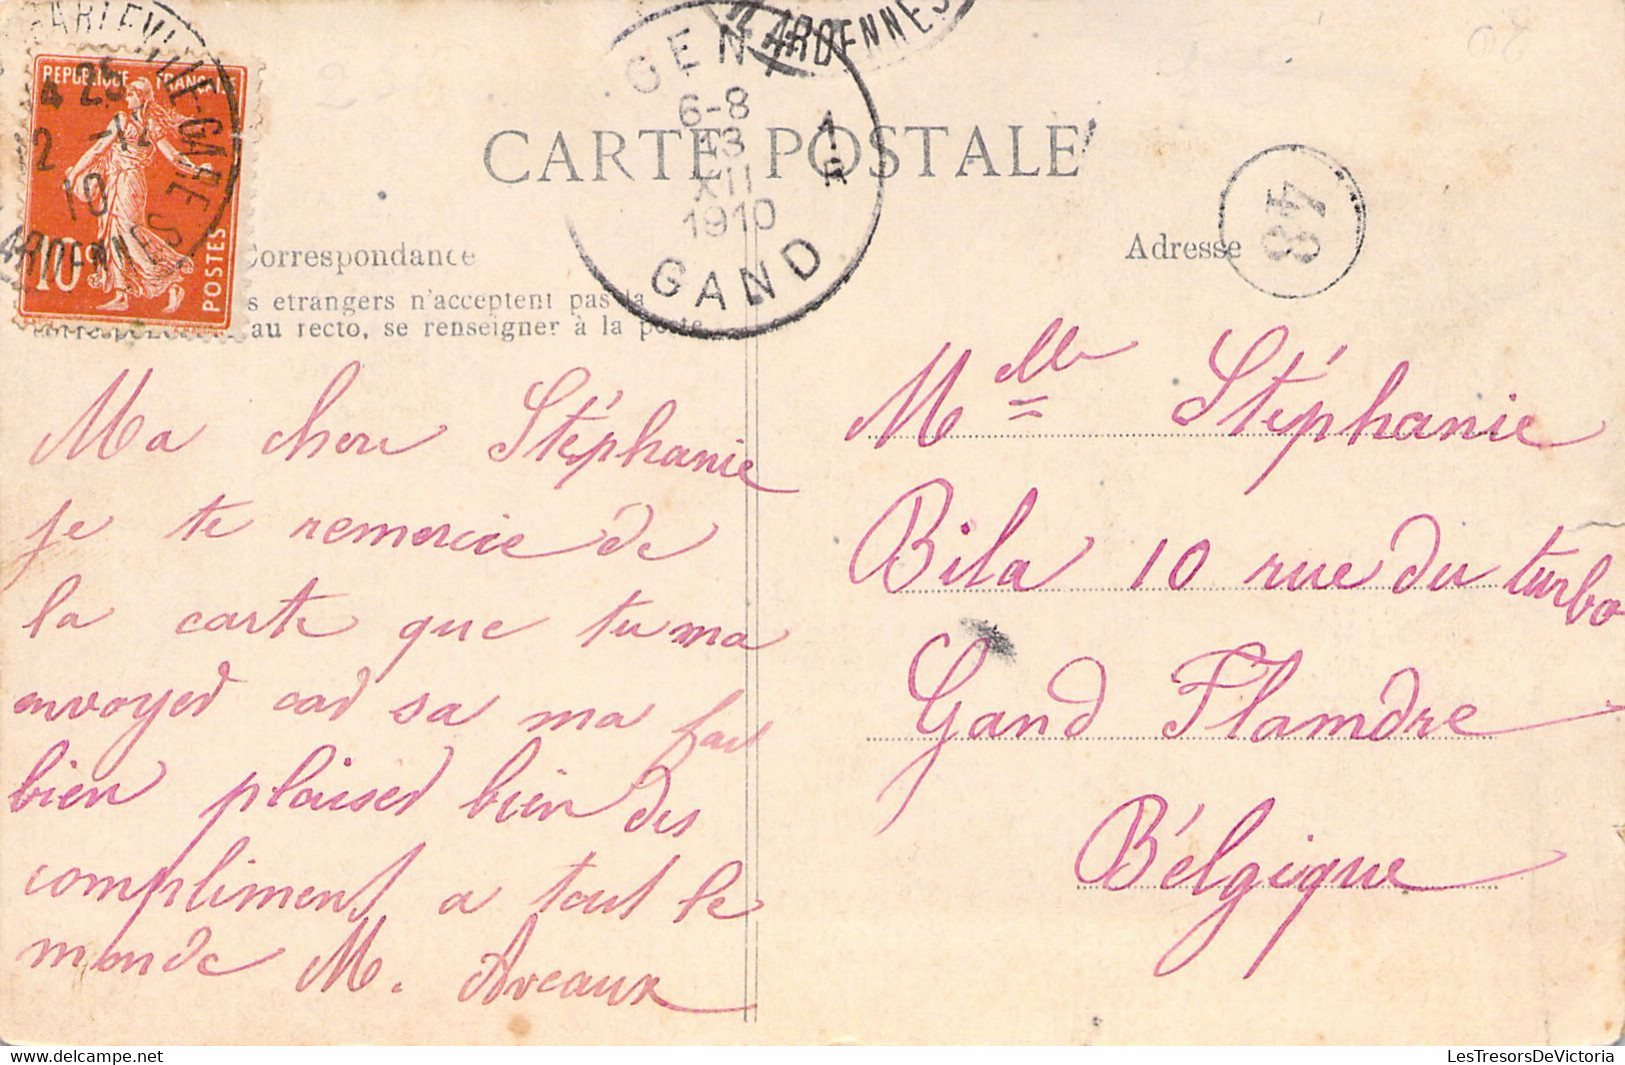 CHARLEVILLE-GARE
4 25
12 -12
10
ARDENNES
REPUBLIQUE FRANÇAISE
10c
POSTES
ARDENNES
GENT
6-8
13
XII
1910
GAND
1
R
CARTE POSTALE
Correspondance
Adresse
48
s etrangers n'acceptent pas la
au recto, se renseigner à la poste
Ma cher Stéphanie
je te remercie de
la carte que tu ma
envoyed cad sa ma fait
bien plaised bien des
compliment a tout le
monde M. Aveaux
Mlle Stéphanie
Bila 10 rue du turbo
Gand Flamdre
Bélgique
LesTresorsDeVictoria
delcampe.net